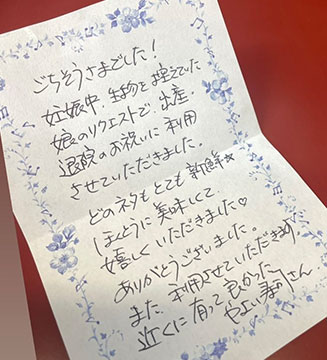 ごちそうさまでした！
妊娠中、生物を控えていた
娘のリクエストで、出産、
退院のお祝いに利用
させていただきました。
どのネタもとても新鮮☆
ほんとうに美味しくて
嬉しくいただきました♡
ありがとうございました。
また、利用させていただきます
近くに有って良かった
やよい寿司さん